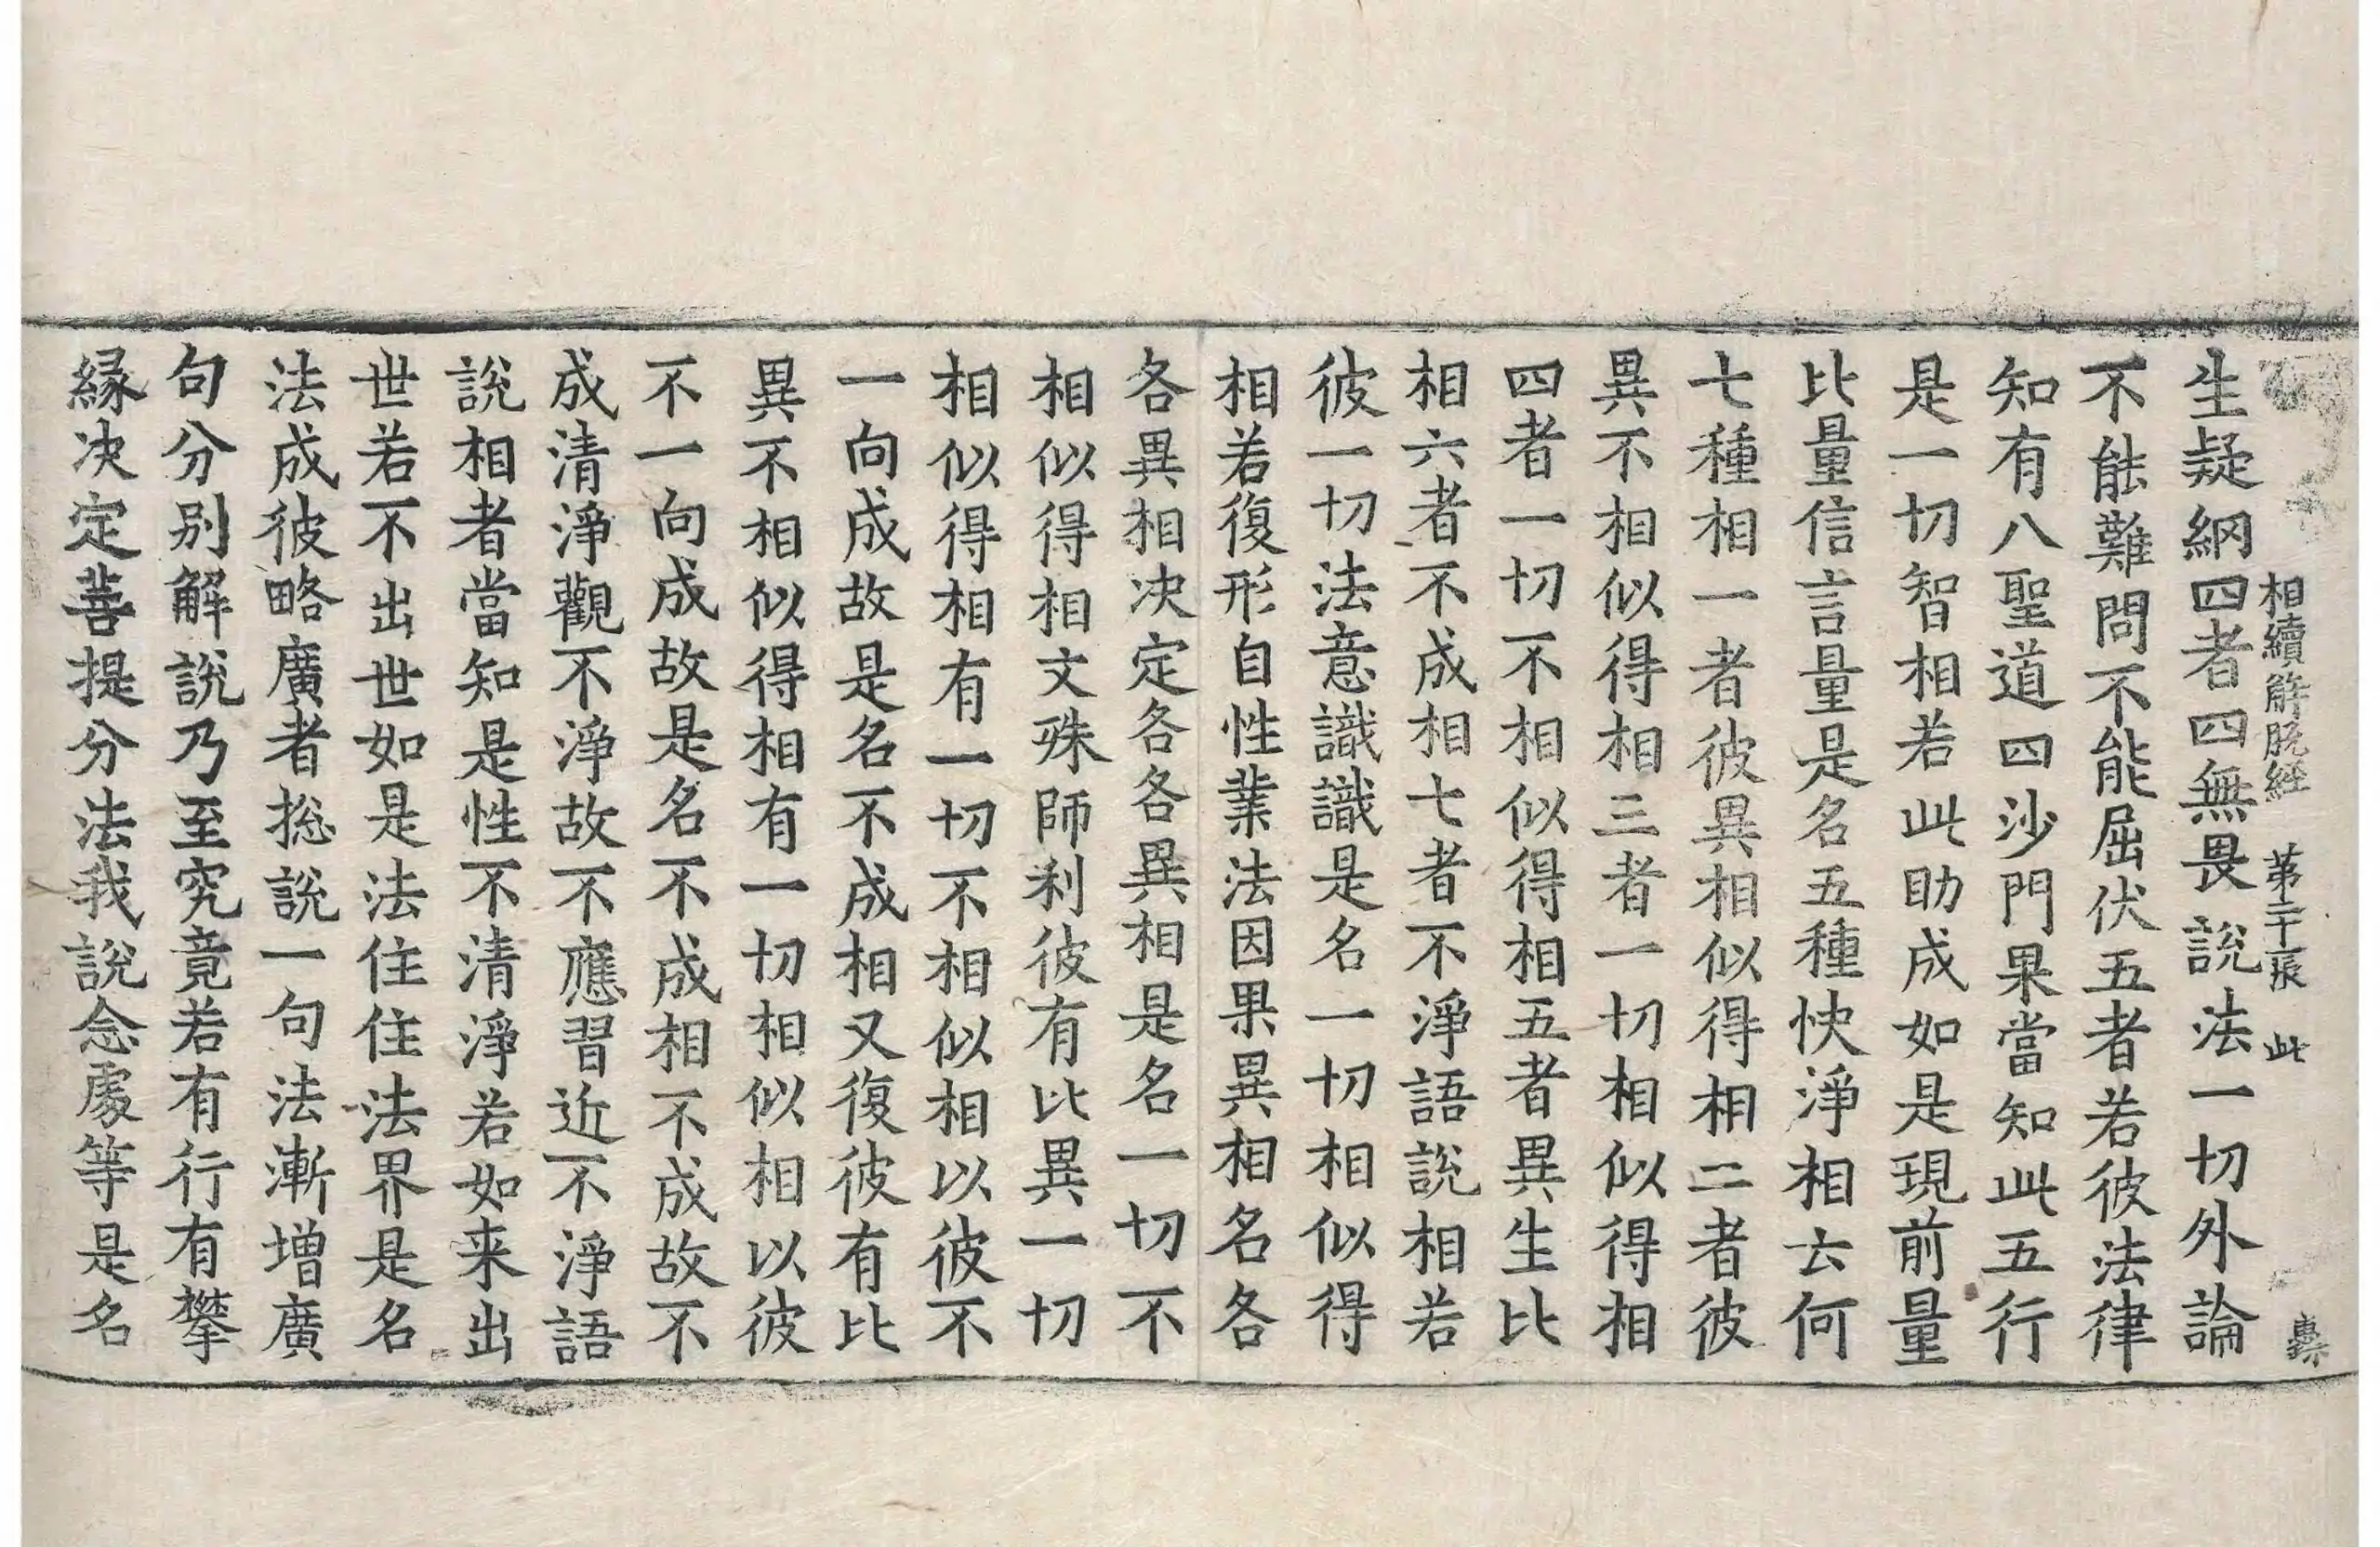 相續解脫經 第二十張 此
生疑網四者四無畏說法一切外論
不能難問不能屈伏五者若彼法律
知有八聖道四沙門果當知此五行
是一切智相若此助成如是現前量
比量信言量是名五種快淨相云何
七種相一者彼異相似得相二者彼
異不相似得相三者一切相似得相
四者一切不相似得相五者異生比
相六者不成相七者不淨語說相若
彼一切法意識識是名一切相似得
相若復形自性業法因果異相名各
各異相决定各各異相是名一切不
相似得相文殊師利彼有比異一切
相似得相有一切不相似相以彼不
一向成故是名不成相又復彼有比
異不相似得相有一切相似相以彼
不一向成故是名不成相不成故不
成清淨觀不淨故不應習近不淨語
說相者當知是性不清淨若如来出
世若不出世如是法住住法界是名
法成彼略廣者捴說一句法漸增廣
句分别解說乃至究竟若有行有攀
緣决定菩提分法我說念處等是名